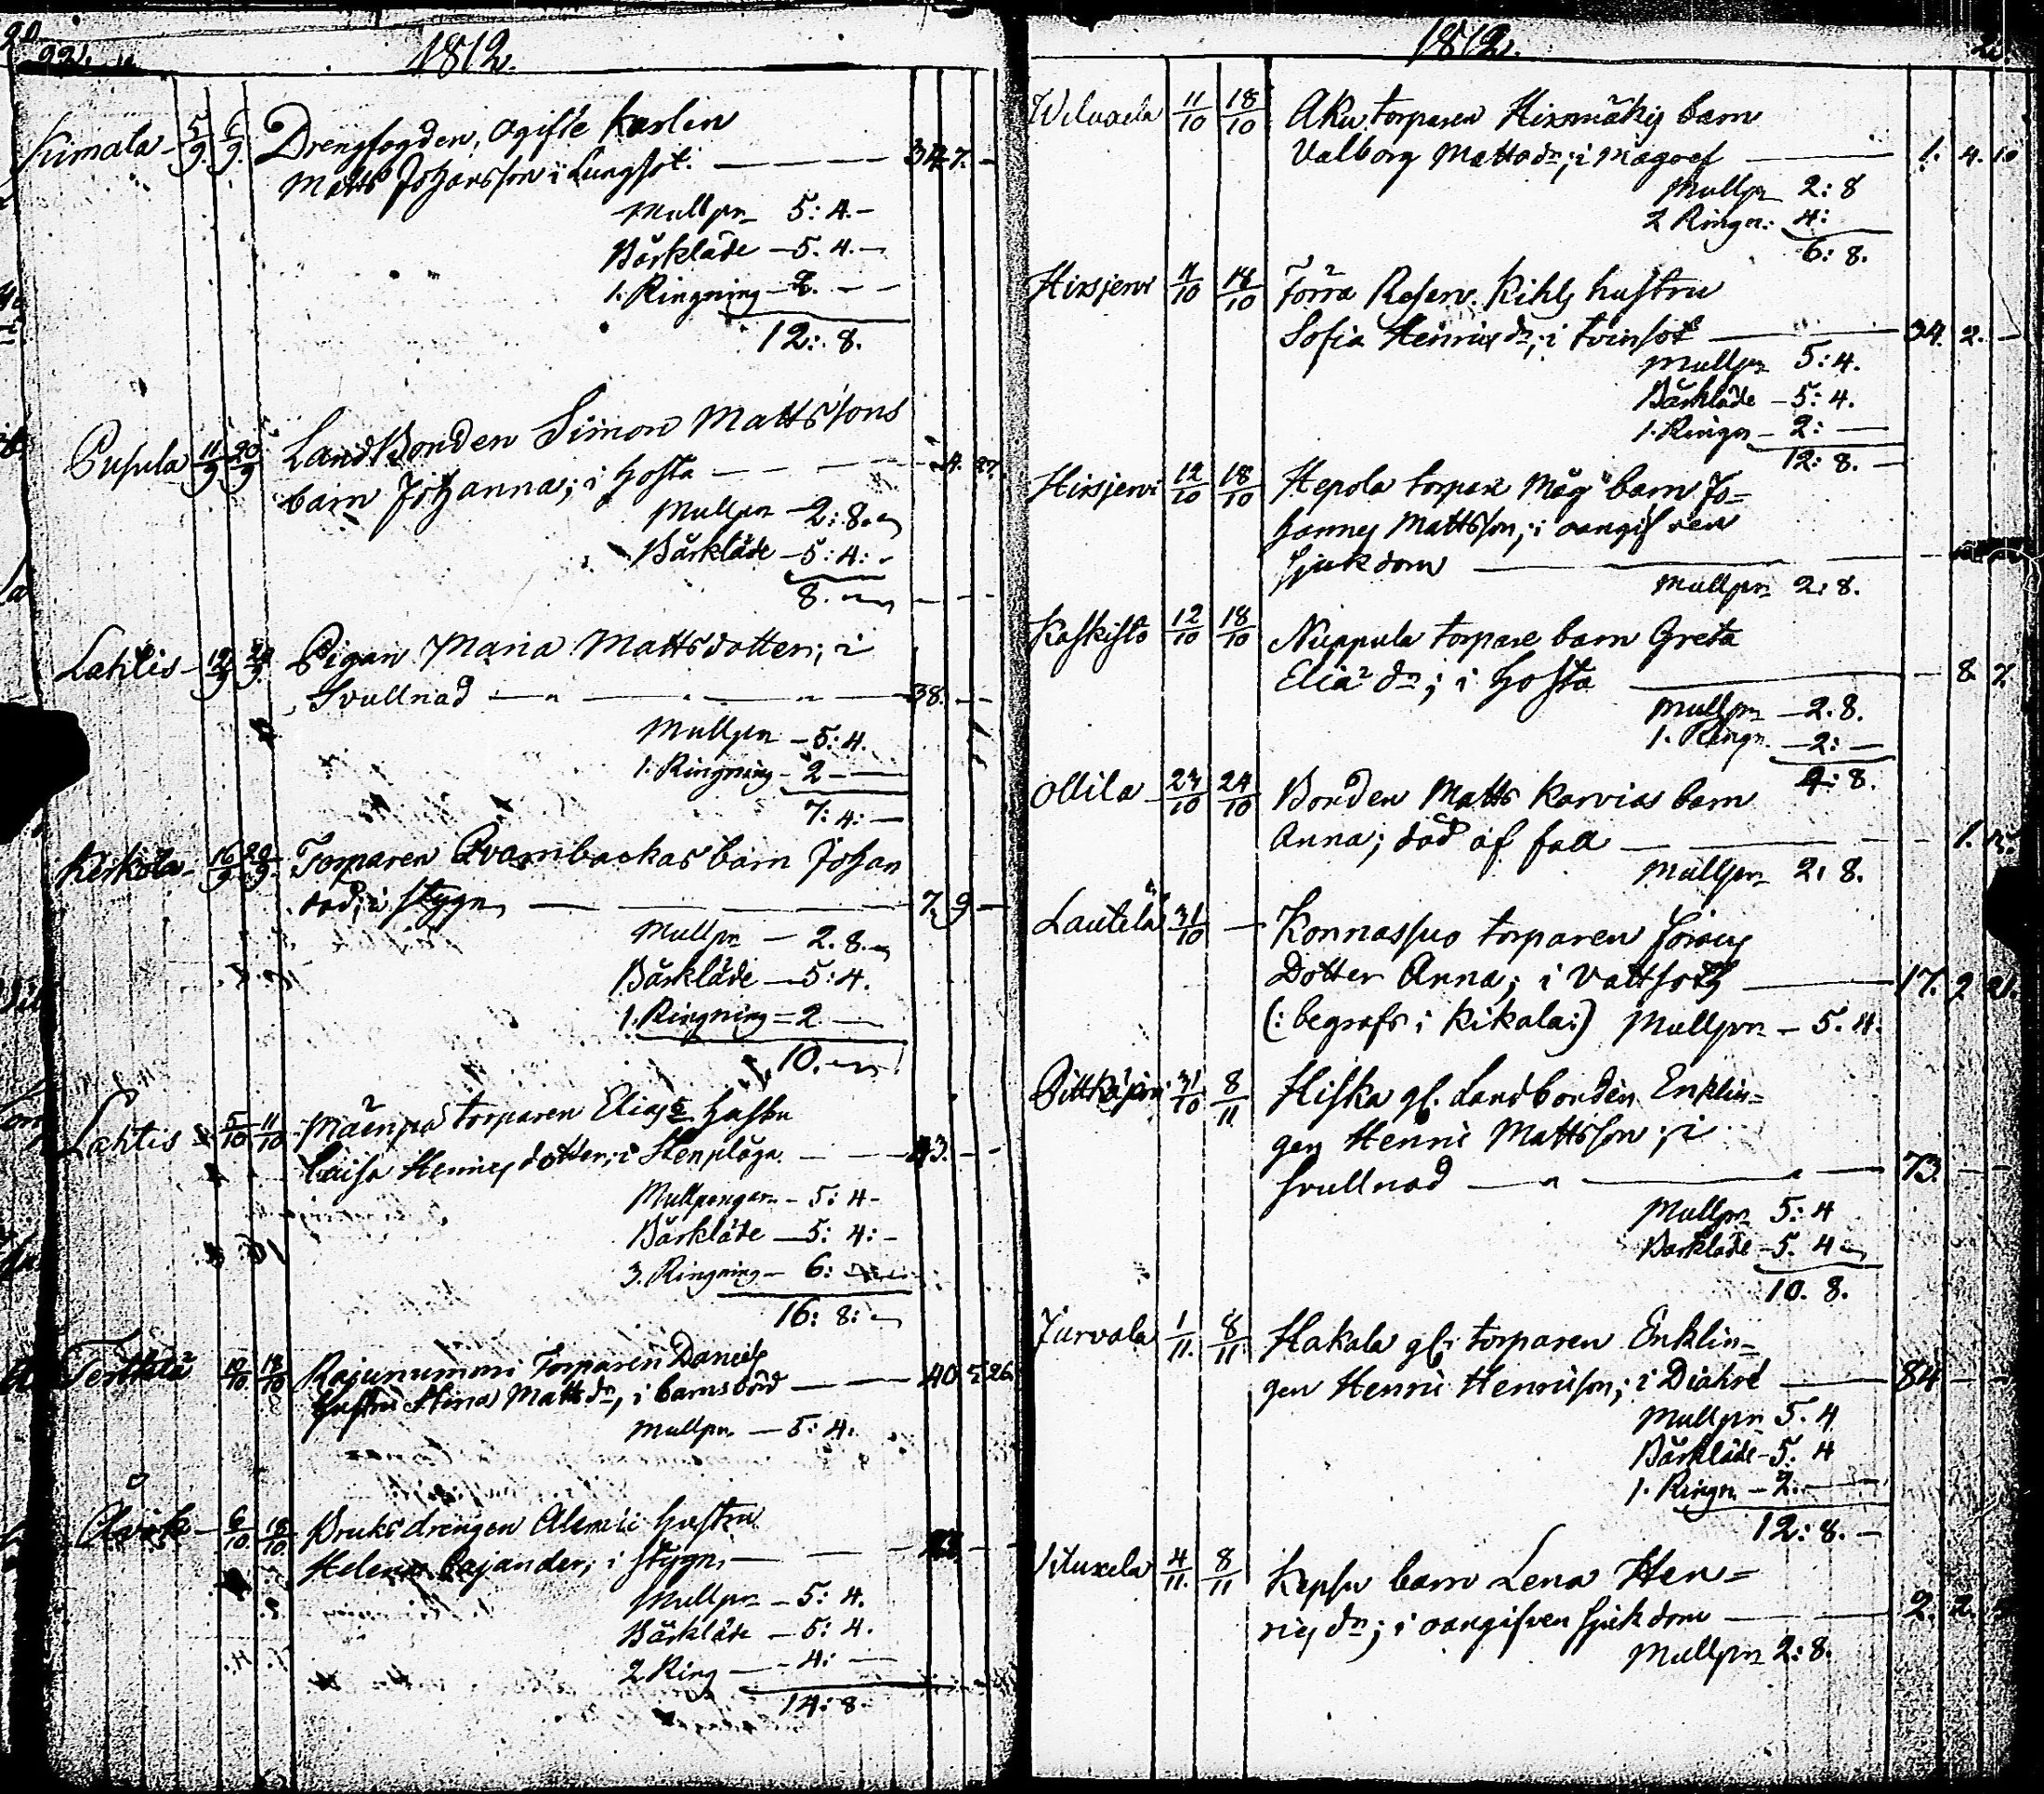 22.
1812.
Kimala 5/9. 6/9. Drengfogden, ogifte karlen
Matts Johansson i Lungsot. 34 7. -
Mullpn 5: 4. -
Bårkläde - 5. 4. -
1. Ringning - 2. - -
12: 8.
Pusula 11/9 20/9 LandBonden Simon Mattssons
barn Johanna; i hosta - 4. 27.
Mullpn - 2: 8.
Bårkläde - 5: 4: -
8.
Lahtis - 12/9 20/9. Pigan Maria Mattsdotter; i
Svullnad 38. - -
Mullpn - 5: 4.
1. Ringning - 2 -
7: 4: -
Kerkola - 16/9 20/9. Torparen Qvarnbackas barn Johan
död; i stygn 7. 9 -
Mullpn - 2. 8.
Bårkläde - 5: 4.
1. Ringning = 2 -
10.
Lahtis 5/10 11/10 Mäenpä torparen Elias hustru
Caisa Henricsdotter; i 43. - -
Mullpengar - 5: 4 -
Bårkläde - 5: 4: -
3. Ringning - 6:
16: 8:
Terttilä 10/10 18/10 Rajunummi Torparen Daniels
hustru Stina Matts dr, i barnsbörd 40 5 26
Mullpn - 5: 4.
Åvik - 6/10 18/10 Bruksdrengen hustru
Helena Cajander; i stygn -
Mullpn - 5: 4.
Bårkläde - 5: 4.
2 Ring - 4: -
14: 8.
1812.
Viluxela 11/10 18/10 Aku torparen Hixmäkis barn
Valborg Mattsdr; i Magref 1. 4. 10
Mullpn 2: 8
2 Ringn: 4:
6: 8.
Hirsjervi 11/10 18/10 Förra Reserv. Kihls hustru
Sofia Henricsdr; i tvinsot 34. 2. -
Mullpn 5: 4.
Bårkläde - 5: 4.
1. Ringn - 2: -
12: 8. -
Hirsjervi 12/10 18/10 Hepola torpare Måg barn Jo=
hannes Mattsson; i oangifven
sjukdom
Mullpn 2. 8.
Kaskisto 12/10 18/10 Nuppula torpare barn Greta
Elias dr; i hosta - 8. 7.
Mullpn - 2. 8.
1. Ringn. - 2: -
4: 8.
Ollila 23/10 24/10 Bonden Matts Karvias barn
Anna; död af fall - 1.
Mullpn 2. 8.
Lautela 31/10 - Konnassuo torparen
Dotter Anna; i Vattsoth 17. 9 21.
(: begrafs i Kikala :) Mullpn - 5. 4.
Pittkäjärvi 31/10 8/11 Hiska gl. Landbonden Enklin=
gen Henric Mattsson; i
svullnad 73. - -
Mullpn 5: 4
Bårkläde - 5. 4
10. 8.
Jurvala 1/11. 8/11 Hakala gl. torparen Enklin=
gen Henric Henricsson; i Diahré 84 - -
Mullpn 5. 4
Bårkläde - 5. 4
1. Ringn - 2. -
12: 8. -
Viluxela 4/11. 8/11 Kepsu barn Lena Hen=
rics dr; i oangifven sjukdom 2. 2.
Mullpn 2: 8.